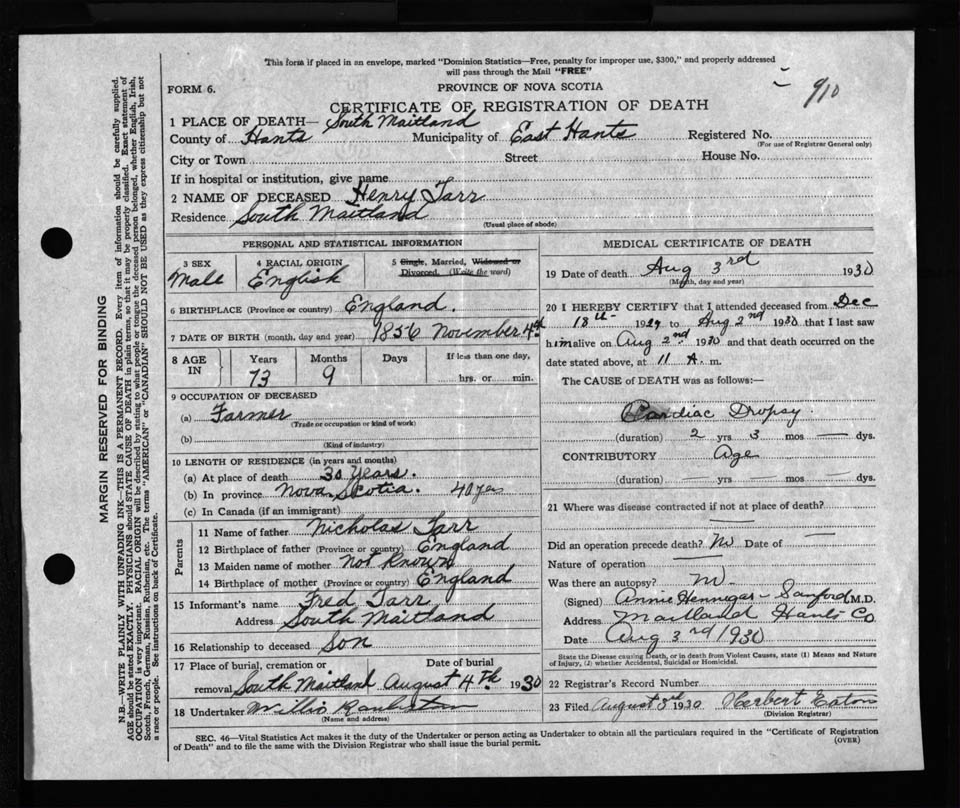 This form if placed in an envelope, marked "Dominion Statistics—Free, penalty for improper use, $300," and properly addressed
will pass through the Mail "FREE"
910
FORM 6.
PROVINCE OF NOVA SCOTIA
CERTIFICATE OF REGISTRATION OF DEATH
1 PLACE OF DEATH— South Maitland
County of Hants Municipality of East Hants Registered No.
(For use of Registrar General only)
City or Town Street House No.
If in hospital or institution, give name
2 NAME OF DECEASED Henry Tarr
Residence South Maitland
(Usual place of abode)
PERSONAL AND STATISTICAL INFORMATION
3 SEX 4 RACIAL ORIGIN 5 Single, Married, Widowed or
Male English Divorced. (Write the word)
6 BIRTHPLACE (Province or country) England.
7 DATE OF BIRTH (month, day and year) 1856 November 4th
8 AGE IN Years Months Days If less than one day,
73 9 hrs. or min.
9 OCCUPATION OF DECEASED
(a) Farmer
(Trade or occupation or kind of work)
(b)
(Kind of industry)
10 LENGTH OF RESIDENCE (in years and months)
(a) At place of death 30 Years.
(b) In province Nova Scotia. 40 yrs
(c) In Canada (if an immigrant)
Parents
11 Name of father Nicholas Tarr
12 Birthplace of father (Province or country) England
13 Maiden name of mother Not Known
14 Birthplace of mother (Province or country) England
15 Informant's name Fred Tarr
Address South Maitland
16 Relationship to deceased Son
17 Place of burial, cremation or Date of burial
removal South Maitland August 4th 1930
18 Undertaker Willis
(Name and address)
MEDICAL CERTIFICATE OF DEATH
19 Date of death Aug 3rd 1930
(Month, day and year)
20 I HEREBY CERTIFY that I attended deceased from Dec
18th 1929 to Aug 2nd 1930 that I last saw
him alive on Aug 2nd 1930 and that death occurred on the
date stated above, at 11 A. m.
The CAUSE OF DEATH was as follows:—
Cardiac Dropsy.
(duration) 2 yrs 3 mos — dys.
CONTRIBUTORY Age
(duration) — yrs — mos — dys.
21 Where was disease contracted if not at place of death?
—
Did an operation precede death? No Date of —
Nature of operation —
Was there an autopsy? No
(Signed) Annie Hennigar-Sanford M.D.
Address Maitland Hants Co
Date Aug 3rd 1930
State the Disease causing Death, or in death from Violent Causes, state (1) Means and Nature
of Injury, (2) whether Accidental, Suicidal or Homicidal.
22 Registrar's Record Number
23 Filed August 3rd 1930 Herbert Eaton
(Division Registrar)
SEC. 46—Vital Statistics Act makes it the duty of the Undertaker or person acting as Undertaker to obtain all the particulars required in the "Certificate of Registration
of Death" and to file the same with the Division Registrar who shall issue the burial permit.
(OVER)
MARGIN RESERVED FOR BINDING
N.B.—WRITE PLAINLY WITH UNFADING INK—THIS IS A PERMANENT RECORD. Every item of information should be carefully supplied.
AGE should be stated EXACTLY. PHYSICIANS should STATE CAUSE OF DEATH in plain terms, so that it may be properly classified. Exact statement of
OCCUPATION is very important. RACIAL ORIGIN will be described by stating to what people or tongue the deceased person belonged, whether English, Irish,
Scotch, French, German, Russian, Ruthenian, etc. The terms "AMERICAN" or "CANADIAN" SHOULD NOT BE USED as they express citizenship but not
a race or people. See instructions on back of Certificate.